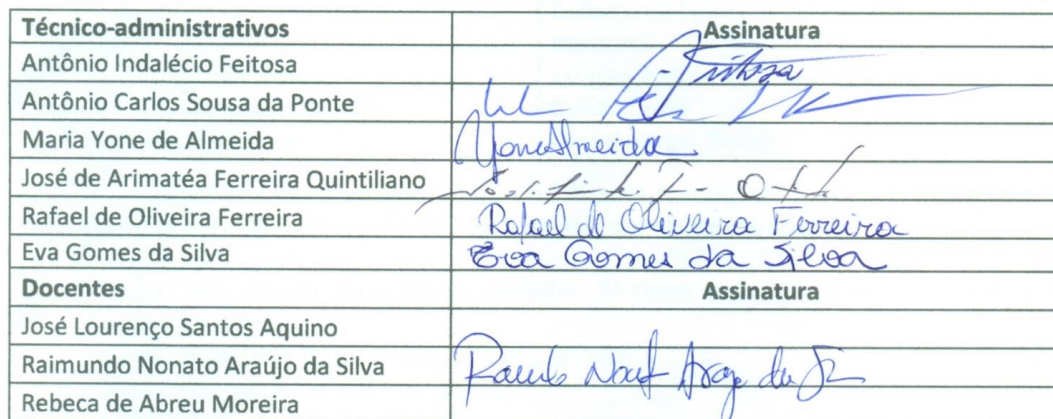 Técnico-administrativos Assinatura
Antônio Indalécio Feitosa Feitosa
Antônio Carlos Sousa da Ponte
Maria Yone de Almeida Yone Almeida
José de Arimatéa Ferreira Quintiliano
Rafael de Oliveira Ferreira Rafael de Oliveira Ferreira
Eva Gomes da Silva Eva Gomes da Silva
Docentes Assinatura
José Lourenço Santos Aquino
Raimundo Nonato Araújo da Silva
Rebeca de Abreu Moreira